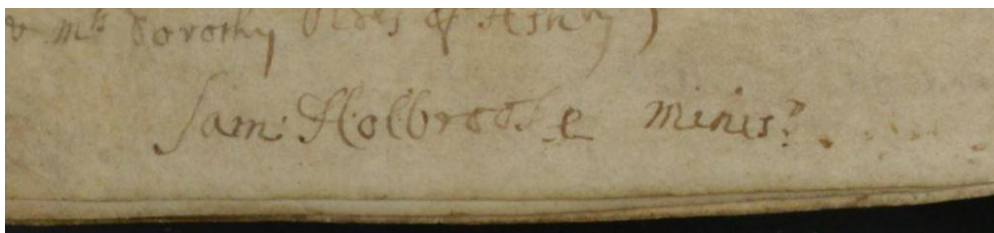 & mrs Dorothy of Ashby)
Sam: Holbrooke minisr.